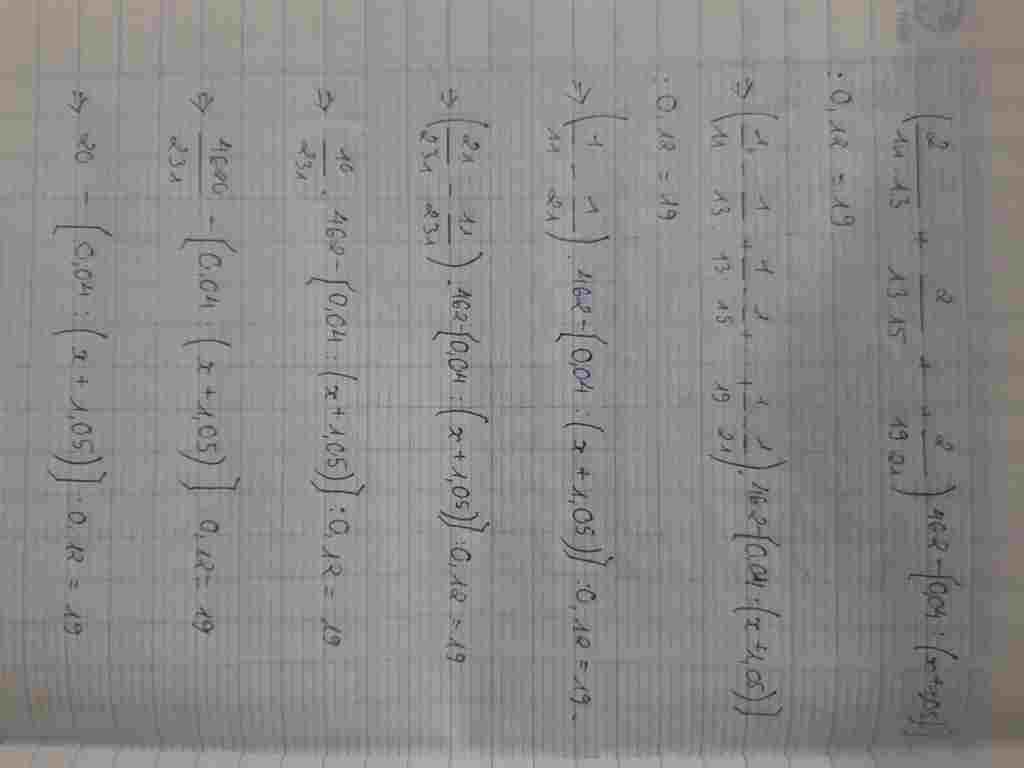 (2/11.13 + 2/13.15 + ... + 2/19.21) . 462 - [0,04 : (x + 1,05)]
: 0,12 = 19
⇒ (1/11 - 1/13 + 1/13 - 1/15 + ... + 1/19 - 1/21) . 462 - [0,04 : (x + 1,05)]
: 0,12 = 19
⇒ (1/11 - 1/21) . 462 - [0,04 : (x + 1,05)] : 0,12 = 19
⇒ (21/231 - 11/231) . 462 - [0,04 : (x + 1,05)] : 0,12 = 19
⇒ 10/231 . 462 - [0,04 : (x + 1,05)] : 0,12 = 19
⇒ 4620/231 - [0,04 : (x + 1,05)] : 0,12 = 19
⇒ 20 - [0,04 : (x + 1,05)] : 0,12 = 19